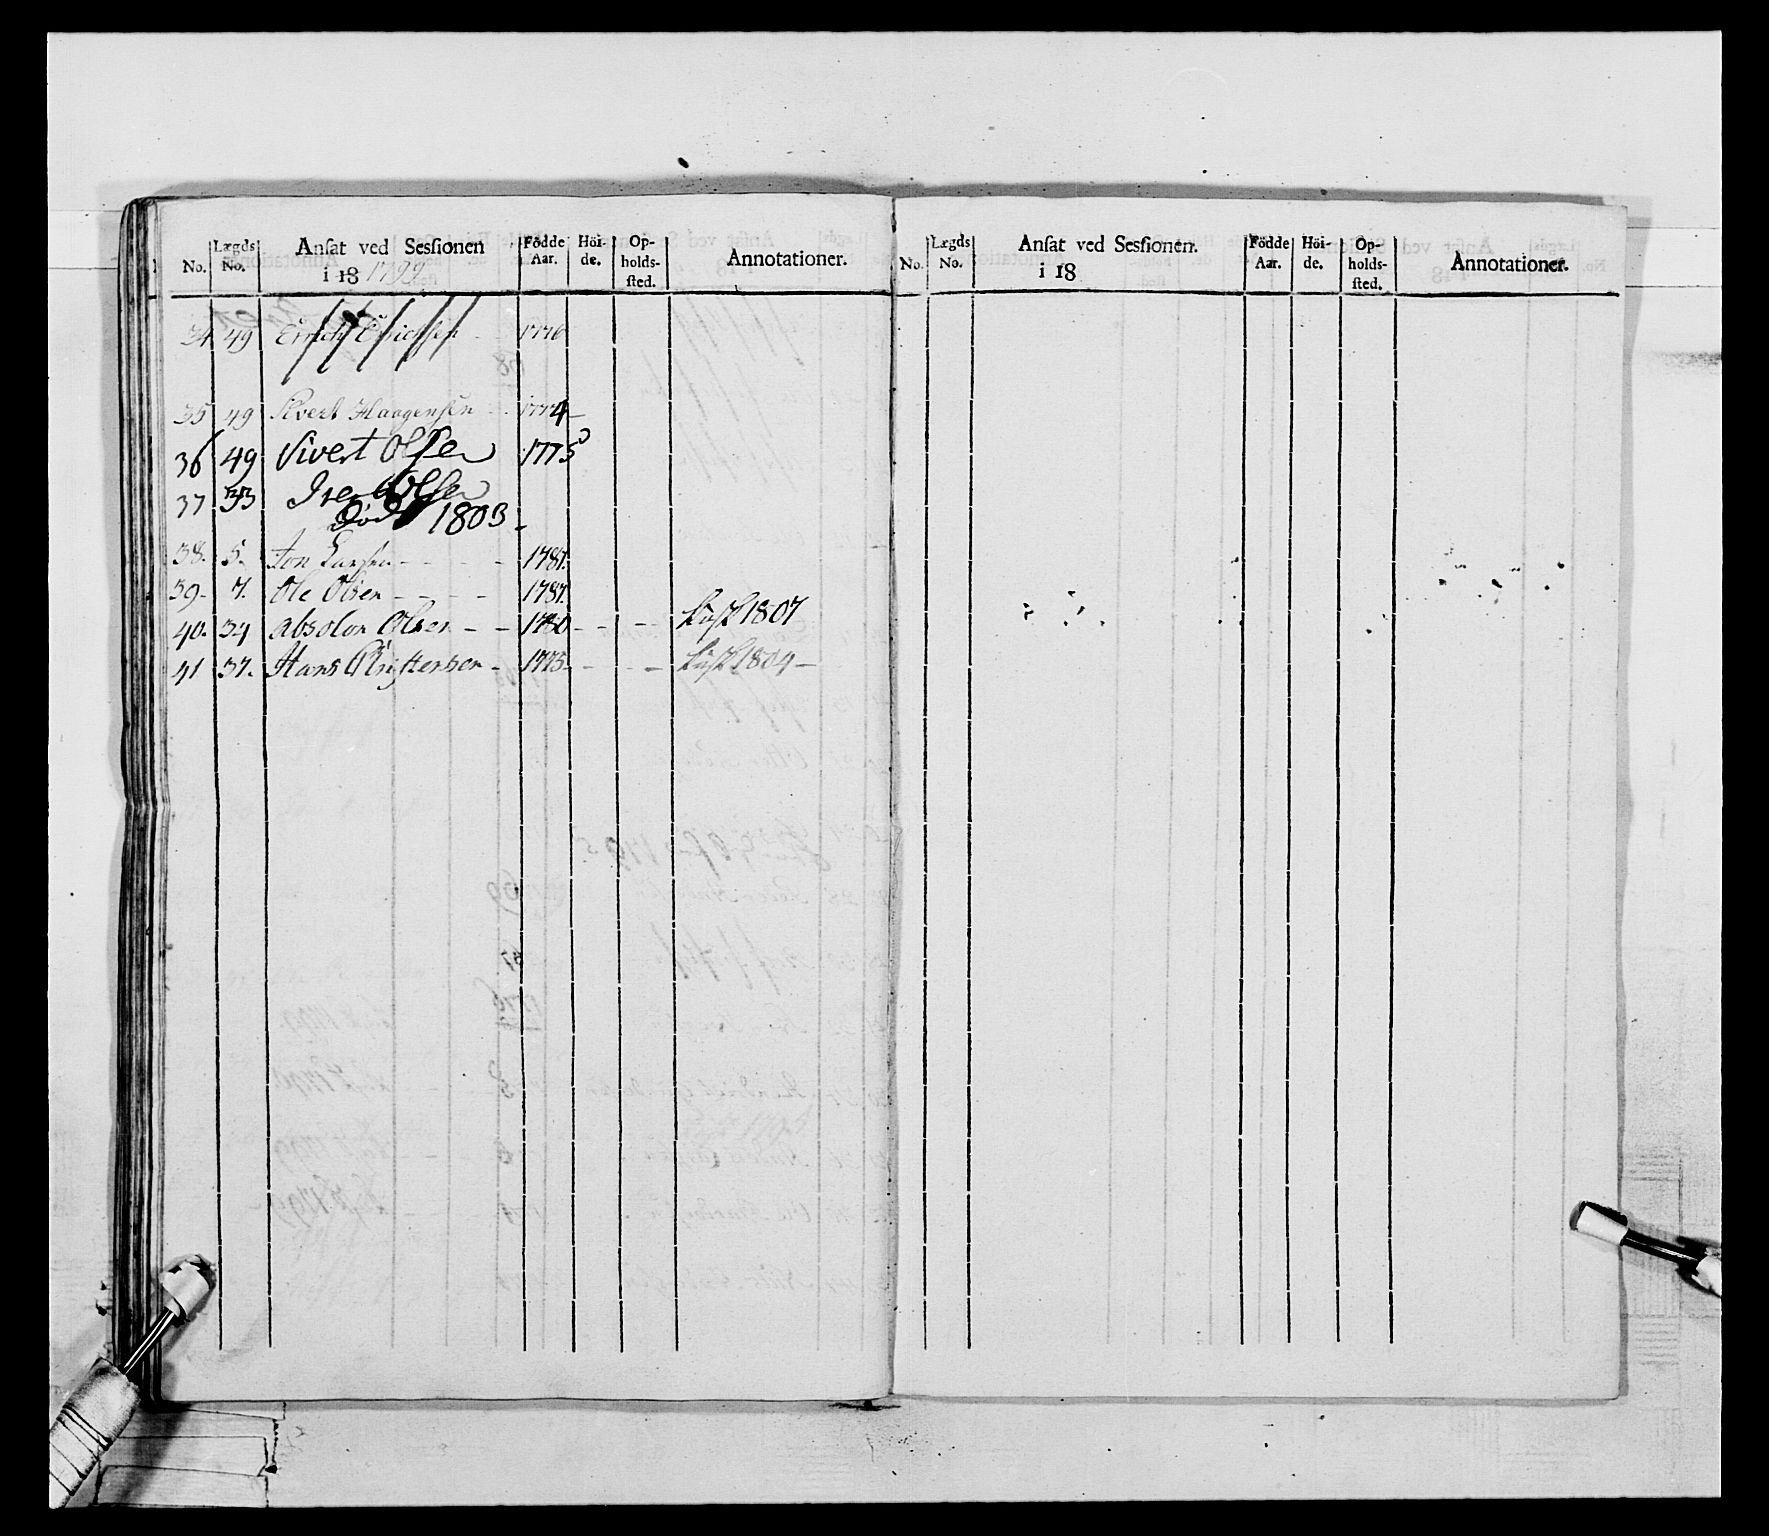 No. Lægds No. Ansat ved Sessionen i 18 1799 Födde Aar. Höi-de. Op-holds-sted. Annotationer.
34 49 Erich Erichsen 1776
35 49 Sivert Haagensen 1774
36 49 Sivert Olsen 1775
37 33 Iver Olsen
død 1803
38. 5. Jon Larsen 1781.
39. 7. Ole Olsen 1781.
40. 34 Absolon Olsen 1780 1807
41 37. Hans Christensen 1773 1804
No. Lægds No. Ansat ved Sessionen. i 18 Födde Aar. Höi-de. Op-holds-sted. Annotationer.